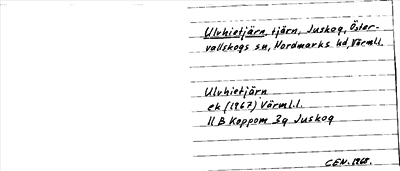 Ulvhietjärn, tjärn, Juskog, Öster-
vallskogs sn, Nordmarks hd, Värml.
Ulvhietjärn
ek (1967) Värml.l.
11 B Koppom 3g Juskog
CEN. 1968.